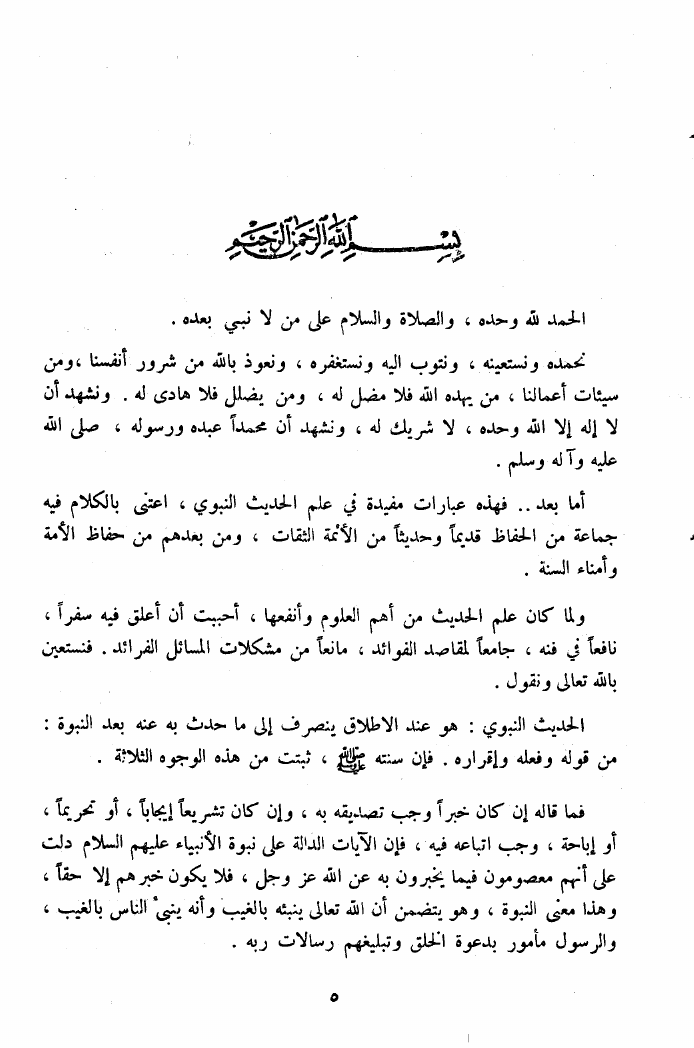 بسم الله الرحمن الرحيم
الحمد لله وحده ، والصلاة والسلام على من لا نبي بعده .
نحمده ونستعينه ، ونتوب اليه ونستغفره ، ونعوذ بالله من شرور أنفسنا ،ومن
سيئات أعمالنا ، من يهده الله فلا مضل له ، ومن يضلل فلا هادى له . ونشهد أن
لا إله إلا الله وحده ، لا شريك له ، ونشهد أن محمداً عبده ورسوله ، صلى الله
عليه وآله وسلم .
أما بعد .. فهذه عبارات مفيدة في علم الحديث النبوي ، اعتنى بالكلام فيه
جماعة من الحفاظ قديماً وحديثاً من الأئمة الثقات ، ومن بعدهم من حفاظ الأمة
وأمناء السنة .
ولما كان علم الحديث من أهم العلوم وأنفعها ، أحببت أن أعلق فيه سفراً ،
نافعاً في فنه ، جامعاً لمقاصد الفوائد ، مانعاً من مشكلات المسائل الفرائد . فنستعين
بالله تعالى ونقول .
الحديث النبوي : هو عند الاطلاق ينصرف إلى ما حدث به عنه بعد النبوة :
من قوله وفعله وإقراره . فإن سنته ﷺ ، ثبتت من هذه الوجوه الثلاثة .
فما قاله إن كان خبراً وجب تصديقه به ، وإن كان تشريعاً إيجاباً ، أو تحريماً ،
أو إباحة ، وجب اتباعه فيه ، فإن الآيات الدالة على نبوة الأنبياء عليهم السلام دلت
على أنهم معصومون فيما يخبرون به عن الله عز وجل ، فلا يكون خبرهم إلا حقاً ،
وهذا معنى النبوة ، وهو يتضمن أن الله تعالى ينبئه بالغيب وأنه ينبئ الناس بالغيب ،
والرسول مأمور بدعوة الخلق وتبليغهم رسالات ربه .
٥